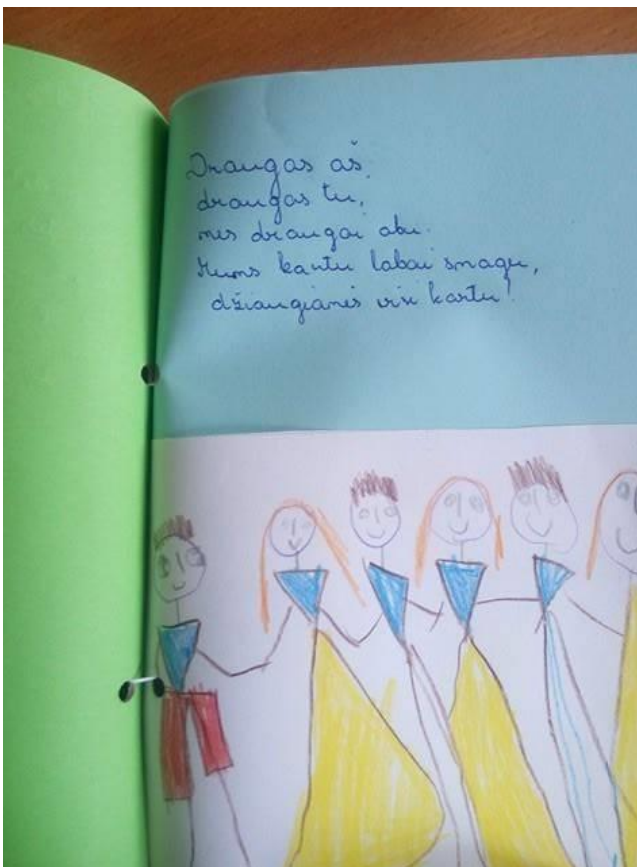 Draugas aš,
draugas tu,
mes draugai abu.
Mums kartu labai smagu,
džiaugiamės visi kartu!